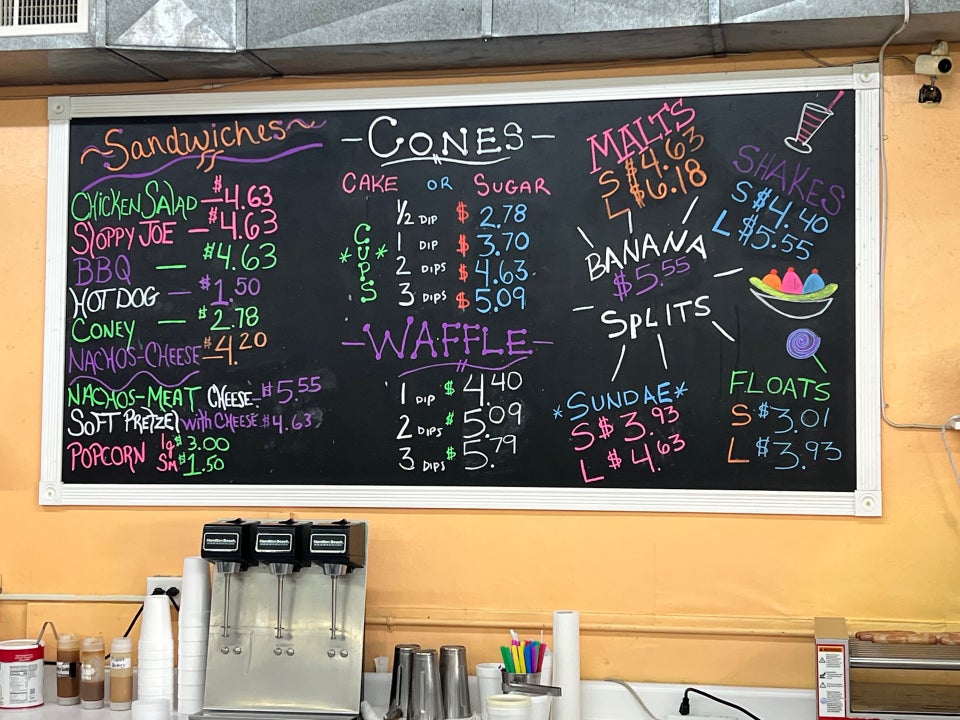 ~Sandwiches~
CHICKEN SALAD — $4.63
SLOPPY JOE — $4.63
BBQ — $4.63
HOT DOG — $1.50
CONEY — $2.78
NACHOS-CHEESE — $4.20
NACHOS-MEAT CHEESE - $5.55
SOFT PRETZEL with CHEESE $4.63
POPCORN lg $3.00
Sm $1.50
-CONES-
CAKE OR SUGAR
*CUPS*
1/2 DIP $2.78
1 DIP $3.70
2 DIPS $4.63
3 DIPS $5.09
-WAFFLE-
1 DIP $4.40
2 DIPS $5.09
3 DIPS $5.79
MALTS
S $4.63
L $6.18
SHAKES
S $4.40
L $5.55
BANANA
$5.55
SPLITS
*SUNDAE*
S $3.93
L $4.63
FLOATS
S $3.01
L $3.93
Hamilton Beach
Hamilton Beach
Hamilton Beach